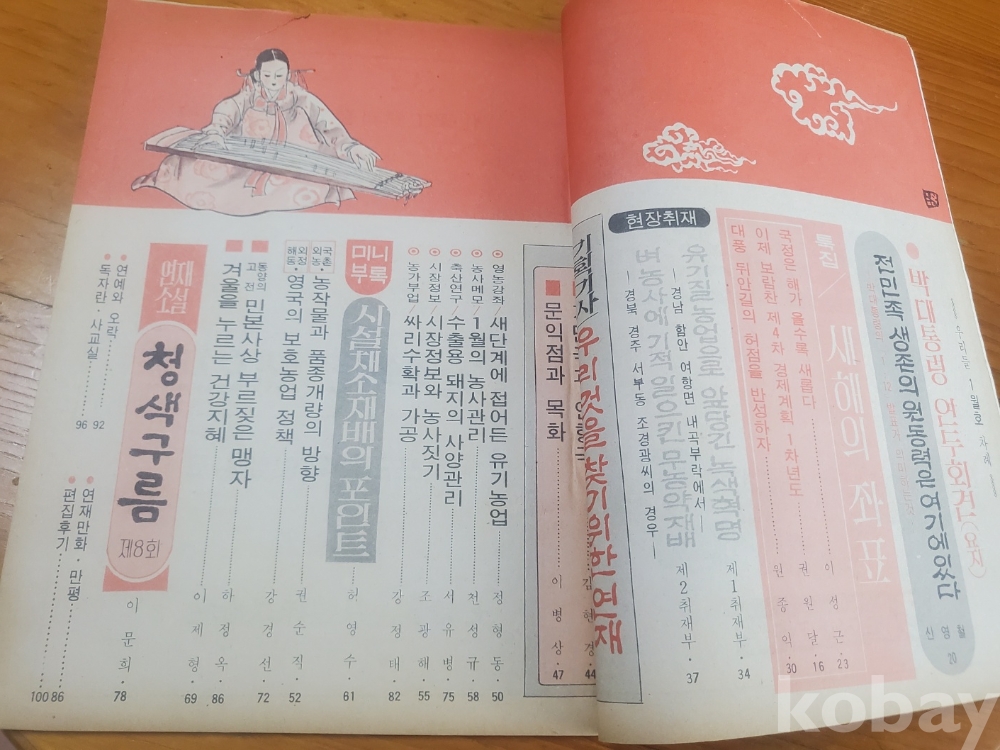 우리들 1월호 차례
박대통령 연두회견 (요지)
전민족 생존의 원동력은 여기에 있다
신영월
20
특집 / 새해의 좌표
국정은 해가 올수록 새롭다
이성근·23
이제 보람찬 제4차 경제계획 1차년도
권원달·16
대풍 뒤안길의 허점을 반성하자
원종익·30
현장취재
유기질농업으로 앞당긴 녹색혁명
—경남 함안 여항면 내곡부락에서—
제1취재부·34
벼농사에 기적 일으킨 무농약재배
—경북 경주 서부동 조경광씨의 경우—
제2취재부·37
기획기사 우리것을 찾기위한 연재
김현경·44
문익점과 목화
이병상·47
영농강좌/새단계에 접어든 유기농업
정형동·50
농사메모/1월의 농사관리
천성규·58
축산연구/수출용 돼지의 사양관리
서유병·75
시장정보/시장정보와 농사짓기
조광해·55
농가부업 싸리수확과 가공
강정태·82
미니부록
시설채소재배의 포인트
허영수·61
외국농촌·농작물과 품종개량의 방향
해외동정·영국의 보호농업 정책
권순직·52
동양의 고전 민본사상 부르짖은 맹자
강경선·72
겨울을 누르는 건강지혜
하정옥·86
이제형·69
연재소설
청색구름
제8회
이문희·78
연예와 오락
92
독자란·사교실
96
연재만화·만평
86
편집후기
100
kobay